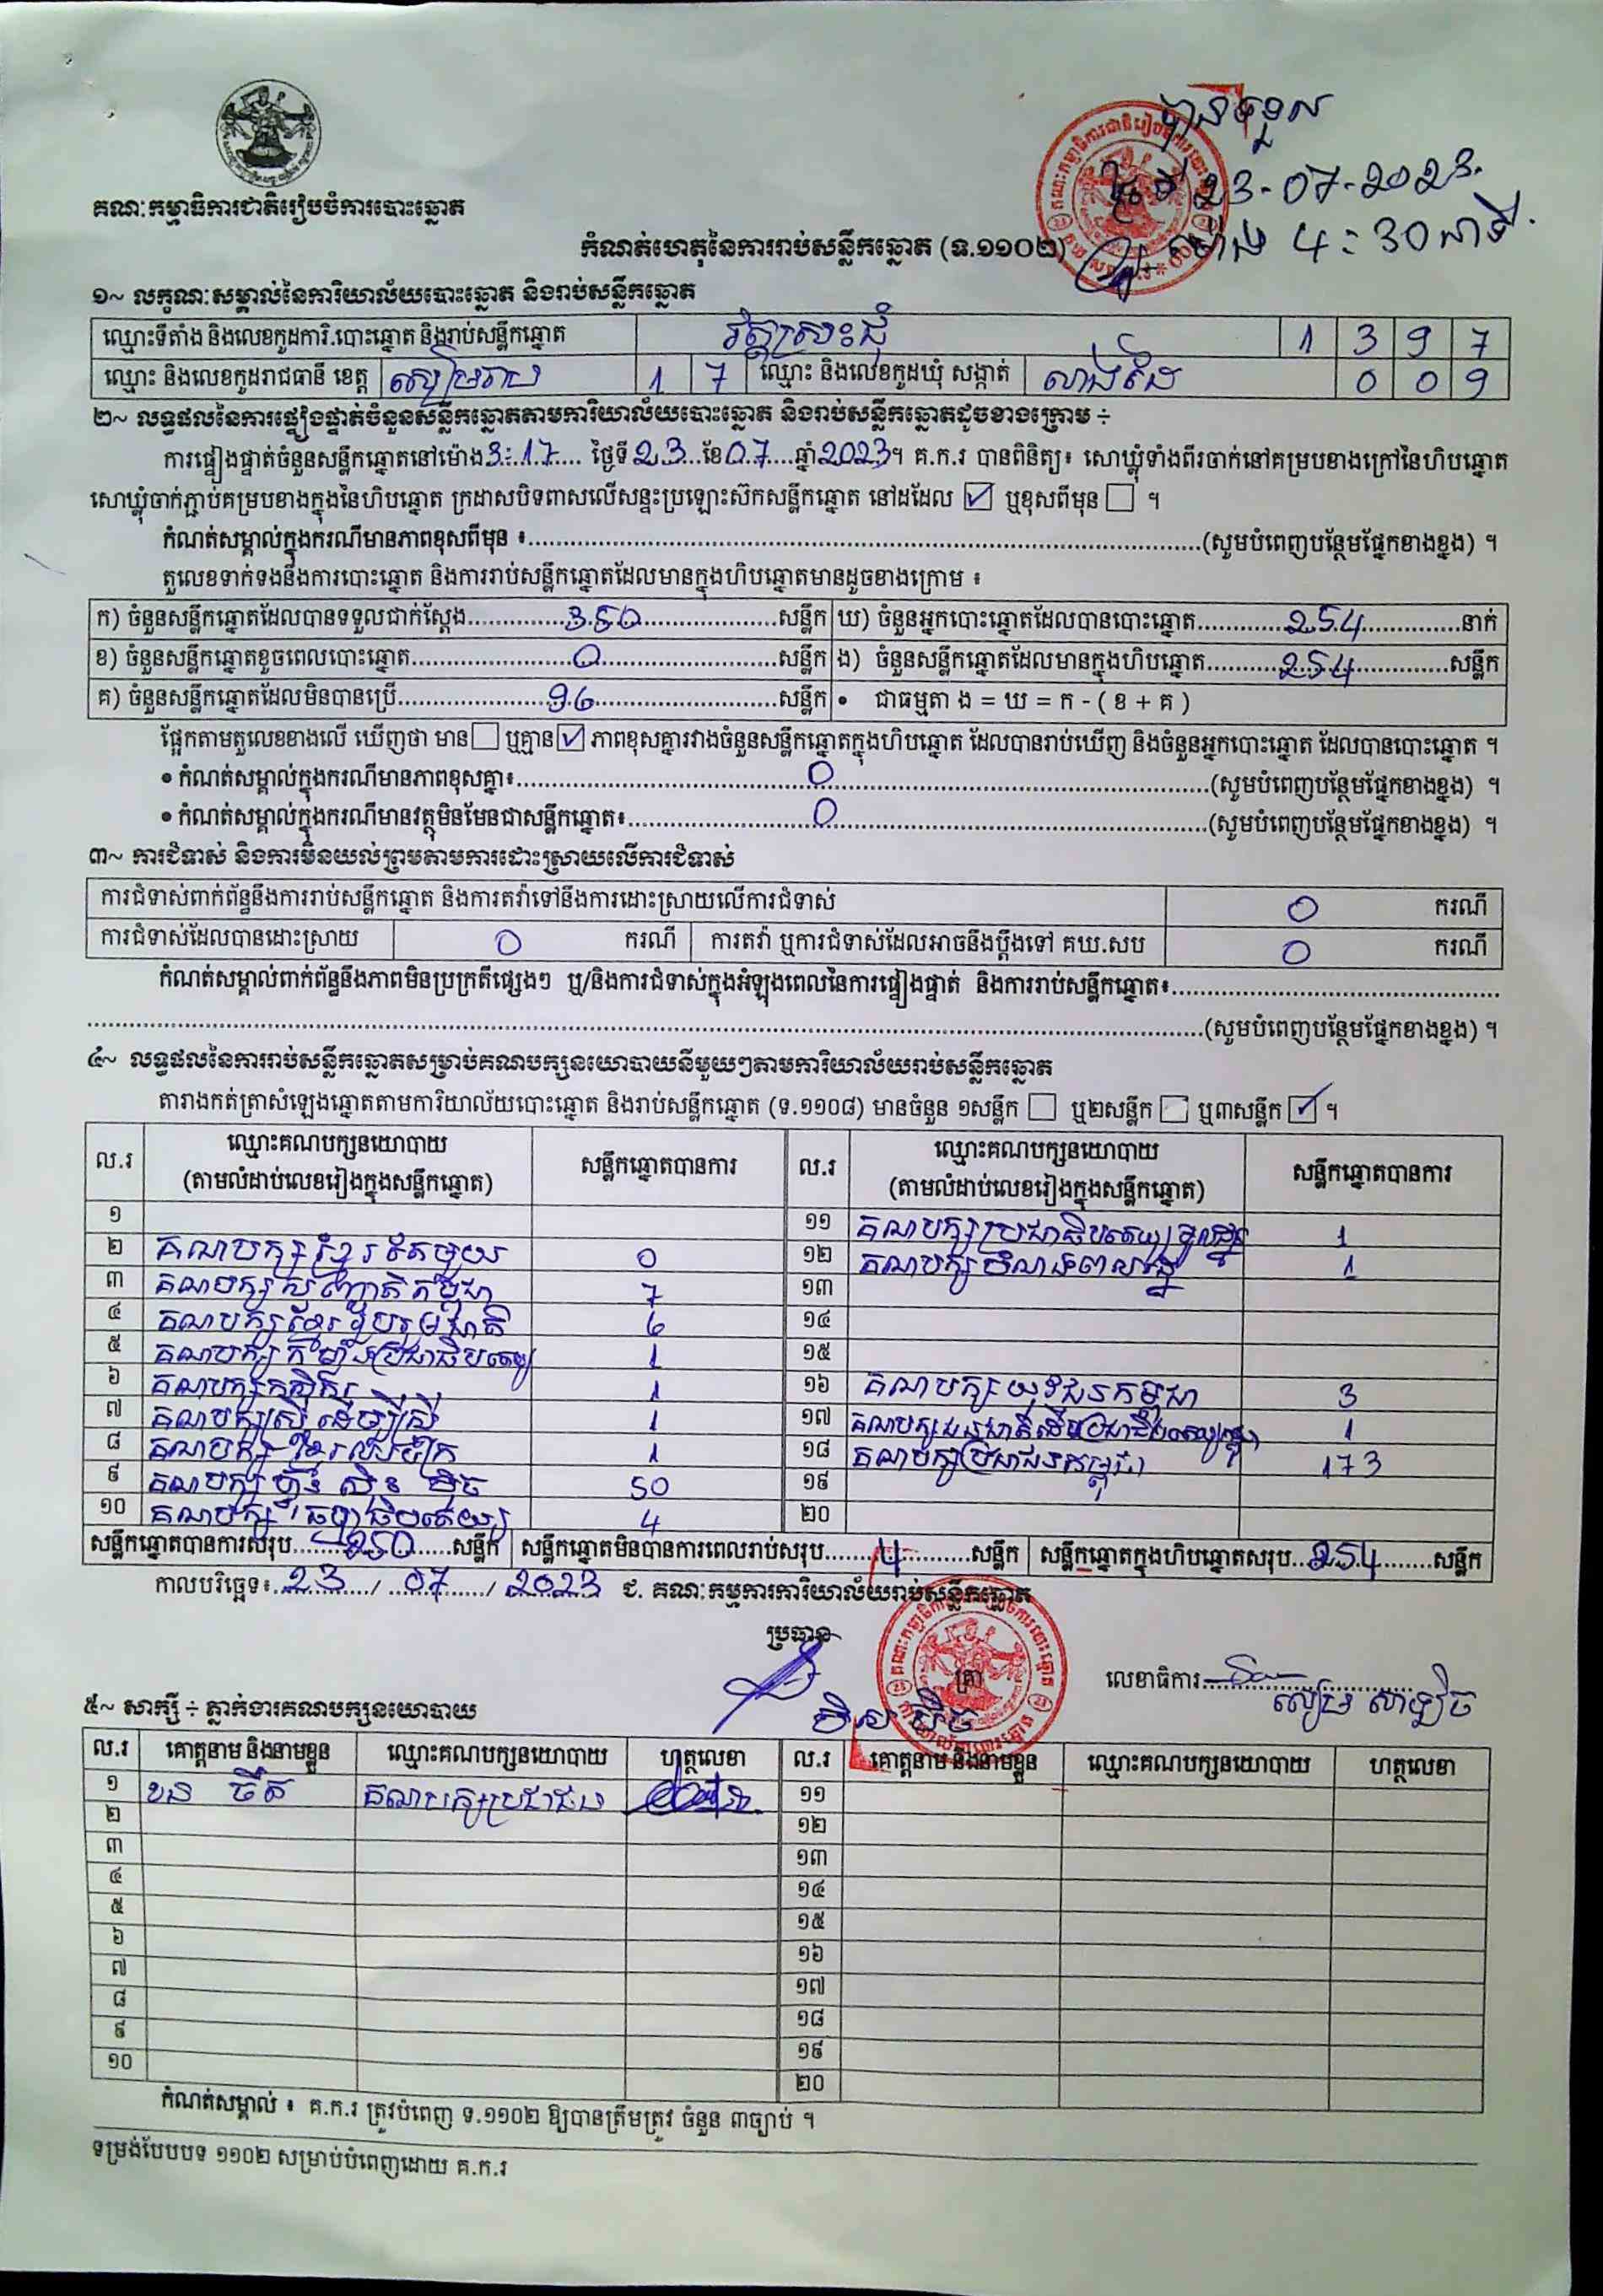 បានទទួល
ថ្ងៃទី 23-07-2023.
ម៉ោង 4:30នាទី.
គណៈកម្មាធិការជាតិរៀបចំការបោះឆ្នោត
កំណត់ហេតុនៃការរាប់សន្លឹកឆ្នោត (ទ.១១០២)
១~ លក្ខណៈសម្គាល់នៃការិយាល័យបោះឆ្នោត និងរាប់សន្លឹកឆ្នោត
ឈ្មោះទីតាំង និងលេខកូដការិ.បោះឆ្នោត និងរាប់សន្លឹកឆ្នោត 1 3 9 7
ឈ្មោះ និងលេខកូដរាជធានី ខេត្ត សៀមរាប 1 7 ឈ្មោះ និងលេខកូដឃុំ សង្កាត់ 0 0 9
២~ លទ្ធផលនៃការផ្ទៀងផ្ទាត់ចំនួនសន្លឹកឆ្នោតតាមការិយាល័យបោះឆ្នោត និងរាប់សន្លឹកឆ្នោតដូចខាងក្រោម ÷
ការផ្ទៀងផ្ទាត់ចំនួនសន្លឹកឆ្នោតនៅម៉ោង 3:17 ថ្ងៃទី 23 ខែ 07 ឆ្នាំ 2023។ គ.ក.រ បានពិនិត្យ៖ សោឃ្លុំទាំងពីរចាក់នៅគម្របខាងក្រៅនៃហិបឆ្នោត
សោឃ្លុំចាក់ភ្ជាប់គម្របខាងក្នុងនៃហិបឆ្នោត ក្រដាសបិទពាសលើសន្ទះប្រឡោះស៊កសន្លឹកឆ្នោត នៅដដែល ☑ ឬខុសពីមុន ☐ ។
កំណត់សម្គាល់ក្នុងករណីមានភាពខុសពីមុន ៖ (សូមបំពេញបន្ថែមផ្នែកខាងខ្នង) ។
តួលេខទាក់ទងនឹងការបោះឆ្នោត និងការរាប់សន្លឹកឆ្នោតដែលមានក្នុងហិបឆ្នោតមានដូចខាងក្រោម ៖
ក) ចំនួនសន្លឹកឆ្នោតដែលបានទទួលជាក់ស្តែង 350 សន្លឹក ឃ) ចំនួនអ្នកបោះឆ្នោតដែលបានបោះឆ្នោត 254 នាក់
ខ) ចំនួនសន្លឹកឆ្នោតខូចពេលបោះឆ្នោត 0 សន្លឹក ង) ចំនួនសន្លឹកឆ្នោតដែលមានក្នុងហិបឆ្នោត 254 សន្លឹក
គ) ចំនួនសន្លឹកឆ្នោតដែលមិនបានប្រើ 96 សន្លឹក • ជាធម្មតា ង = ឃ = ក - ( ខ + គ )
ផ្អែកតាមតួលេខខាងលើ ឃើញថា មាន ☐ ឬគ្មាន ☑ ភាពខុសគ្នារវាងចំនួនសន្លឹកឆ្នោតក្នុងហិបឆ្នោត ដែលបានរាប់ឃើញ និងចំនួនអ្នកបោះឆ្នោត ដែលបានបោះឆ្នោត ។
• កំណត់សម្គាល់ក្នុងករណីមានភាពខុសគ្នា៖ 0 (សូមបំពេញបន្ថែមផ្នែកខាងខ្នង) ។
• កំណត់សម្គាល់ក្នុងករណីមានវត្ថុមិនមែនជាសន្លឹកឆ្នោត៖ 0 (សូមបំពេញបន្ថែមផ្នែកខាងខ្នង) ។
៣~ ការជំទាស់ និងការមិនយល់ព្រមតាមការដោះស្រាយលើការជំទាស់
ការជំទាស់ពាក់ព័ន្ធនឹងការរាប់សន្លឹកឆ្នោត និងការតវ៉ាទៅនឹងការដោះស្រាយលើការជំទាស់ 0 ករណី
ការជំទាស់ដែលបានដោះស្រាយ 0 ករណី ការតវ៉ា ឬការជំទាស់ដែលអាចនឹងប្តឹងទៅ គឃ.សប 0 ករណី
កំណត់សម្គាល់ពាក់ព័ន្ធនឹងភាពមិនប្រក្រតីផ្សេងៗ ឬ/និងការជំទាស់ក្នុងអំឡុងពេលនៃការផ្ទៀងផ្ទាត់ និងការរាប់សន្លឹកឆ្នោត៖
(សូមបំពេញបន្ថែមផ្នែកខាងខ្នង) ។
៤~ លទ្ធផលនៃការរាប់សន្លឹកឆ្នោតសម្រាប់គណបក្សនយោបាយនីមួយៗតាមការិយាល័យរាប់សន្លឹកឆ្នោត
តារាងកត់ត្រាសំឡេងឆ្នោតតាមការិយាល័យបោះឆ្នោត និងរាប់សន្លឹកឆ្នោត (ទ.១១០៨) មានចំនួន ១សន្លឹក ☐ ឬ២សន្លឹក ☐ ឬ៣សន្លឹក ☑ ។
ល.រ ឈ្មោះគណបក្សនយោបាយ (តាមលំដាប់លេខរៀងក្នុងសន្លឹកឆ្នោត) សន្លឹកឆ្នោតបានការ ល.រ ឈ្មោះគណបក្សនយោបាយ (តាមលំដាប់លេខរៀងក្នុងសន្លឹកឆ្នោត) សន្លឹកឆ្នោតបានការ
១ ១១ គណបក្សប្រជាធិបតេយ្យមូលដ្ឋាន 1
២ គណបក្សខ្មែរតែមួយ 0 ១២ គណបក្សចំណងពលរដ្ឋ 1
៣ គណបក្សសញ្ជាតិកម្ពុជា 7 ១៣
៤ គណបក្សខ្មែររួបរួមជាតិ 6 ១៤
៥ គណបក្សកម្លាំងប្រជាធិបតេយ្យ 1 ១៥
៦ គណបក្សកសិករ 1 ១៦ គណបក្សយុវជនកម្ពុជា 3
៧ គណបក្សស្ត្រីដើម្បីស្ត្រី 1 ១៧ 1
៨ គណបក្សខ្មែរឈប់ក្រ 1 ១៨ គណបក្សប្រជាជនកម្ពុជា 173
៩ គណបក្សហ្វ៊ុនស៊ិនប៉ិច 50 ១៩
១០ គណបក្សធម្មាធិបតេយ្យ 4 ២០
សន្លឹកឆ្នោតបានការសរុប 250 សន្លឹក សន្លឹកឆ្នោតមិនបានការពេលរាប់សរុប 4 សន្លឹក សន្លឹកឆ្នោតក្នុងហិបឆ្នោតសរុប 254 សន្លឹក
កាលបរិច្ឆេទ៖ 23 / 07 / 2023 ជ. គណៈកម្មការការិយាល័យរាប់សន្លឹកឆ្នោត
ប្រធាន ត្រា លេខាធិការ
៥~ សាក្សី ÷ ភ្នាក់ងារគណបក្សនយោបាយ
ល.រ គោត្តនាម និងនាមខ្លួន ឈ្មោះគណបក្សនយោបាយ ហត្ថលេខា ល.រ គោត្តនាម និងនាមខ្លួន ឈ្មោះគណបក្សនយោបាយ ហត្ថលេខា
១ គណបក្សប្រជាជន ១១
២ ១២
៣ ១៣
៤ ១៤
៥ ១៥
៦ ១៦
៧ ១៧
៨ ១៨
៩ ១៩
១០ ២០
កំណត់សម្គាល់ ៖ គ.ក.រ ត្រូវបំពេញ ទ.១១០២ ឱ្យបានត្រឹមត្រូវ ចំនួន ៣ច្បាប់ ។
ទម្រង់បែបបទ ១១០២ សម្រាប់បំពេញដោយ គ.ក.រ